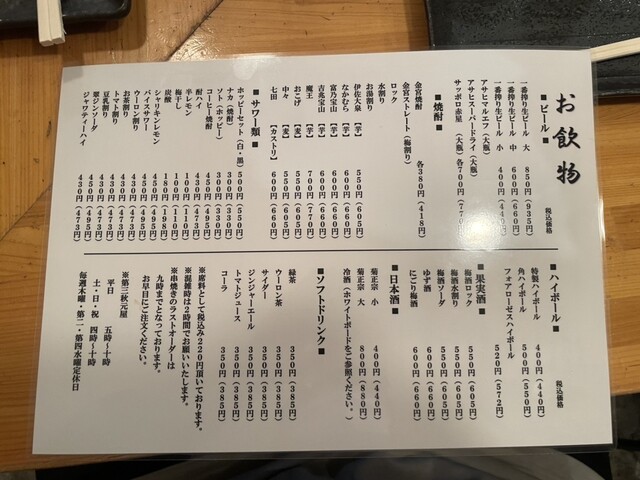 お飲物
税込価格
■ビール■
一番搾り生ビール 大 850円(935円)
一番搾り生ビール 中 600円(660円)
一番搾り生ビール 小 400円(440円)
アサヒマルエフ(大瓶)
アサヒスーパードライ(大瓶)
サッポロ赤星 (大瓶) 各700円(770円)
■焼酎■
金宮焼酎 各380円(418円)
金宮ストレート(梅割り)
ロック
水割り
お湯割り
伊佐大泉 【芋】 550円(605円)
なかむら 【芋】 600円(660円)
富乃宝山 【芋】 600円(660円)
吉兆宝山 【芋】 600円(660円)
魔王 【芋】 700円(770円)
おこげ 【麦】 550円(605円)
中々 【麦】 550円(605円)
七田 【カストリ】 600円(660円)
■サワー類■
ホッピーセット(白・黒) 500円(550円)
ナカ(焼酎) 300円(330円)
ソト(ホッピー) 300円(330円)
コーヒー焼酎 450円(495円)
酎ハイ 430円(473円)
半レモン 100円(110円)
梅干し 100円(110円)
炭酸 180円(198円)
シャリキンレモン 450円(495円)
バイスサワー 450円(495円)
ウーロン割り 430円(473円)
お茶割り 430円(473円)
トマト割り 430円(473円)
豆乳割り 430円(473円)
翠ジンソーダ 450円(495円)
ジャワティーハイ 430円(473円)
税込価格
■ハイボール■
特製ハイボール 400円(440円)
角ハイボール 500円(550円)
フォアローゼスハイボール 520円(572円)
■果実酒■
梅酒ロック 550円(605円)
梅酒水割り 550円(605円)
梅酒ソーダ 550円(605円)
ゆず酒 600円(660円)
にごり梅酒 600円(660円)
■日本酒■
菊正宗 小 400円(440円)
菊正宗 大 800円(880円)
冷酒(ホワイトボードをご参照ください。)
■ソフトドリンク■
緑茶 350円(385円)
ウーロン茶 350円(385円)
サイダー 350円(385円)
ジンジャーエール 350円(385円)
トマトジュース 350円(385円)
コーラ 350円(385円)
※席料として税込み220円頂いております。
※混雑時は2時間でお願いいたします。
※串焼きのラストオーダーは
九時までとなっております。
お早目にご注文ください。
※第三秋元屋
平日 五時～十時
土・日・祝 四時～十時
毎週木曜・第二・第四水曜定休日